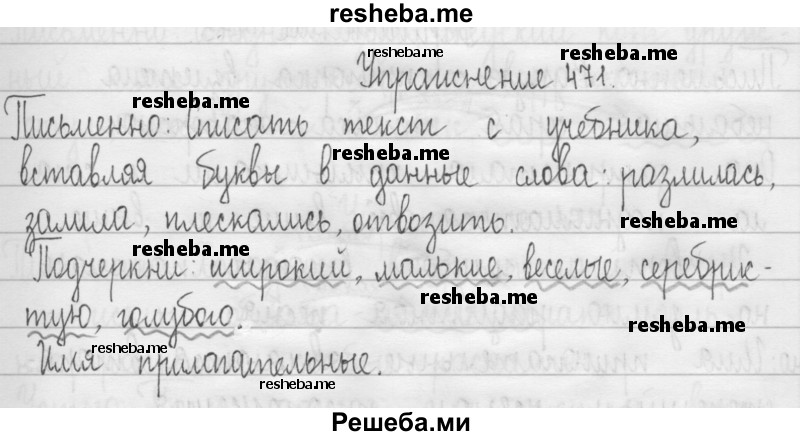 resheba.me
resheba.me resheba.me
Упражнение 471.
resheba.me
Письменно: списать текст с учебника,
resheba.me
вставляя буквы в данные слова: разлилась,
залила, плескались, отвозить.
resheba.me
resheba.me
Подчеркни: широкий, малькие, веселые, серебрис-
resheba.me
тую, голубого.
resheba.me
resheba.me
Имя прилагательные.
resheba.me
Решеба.ми